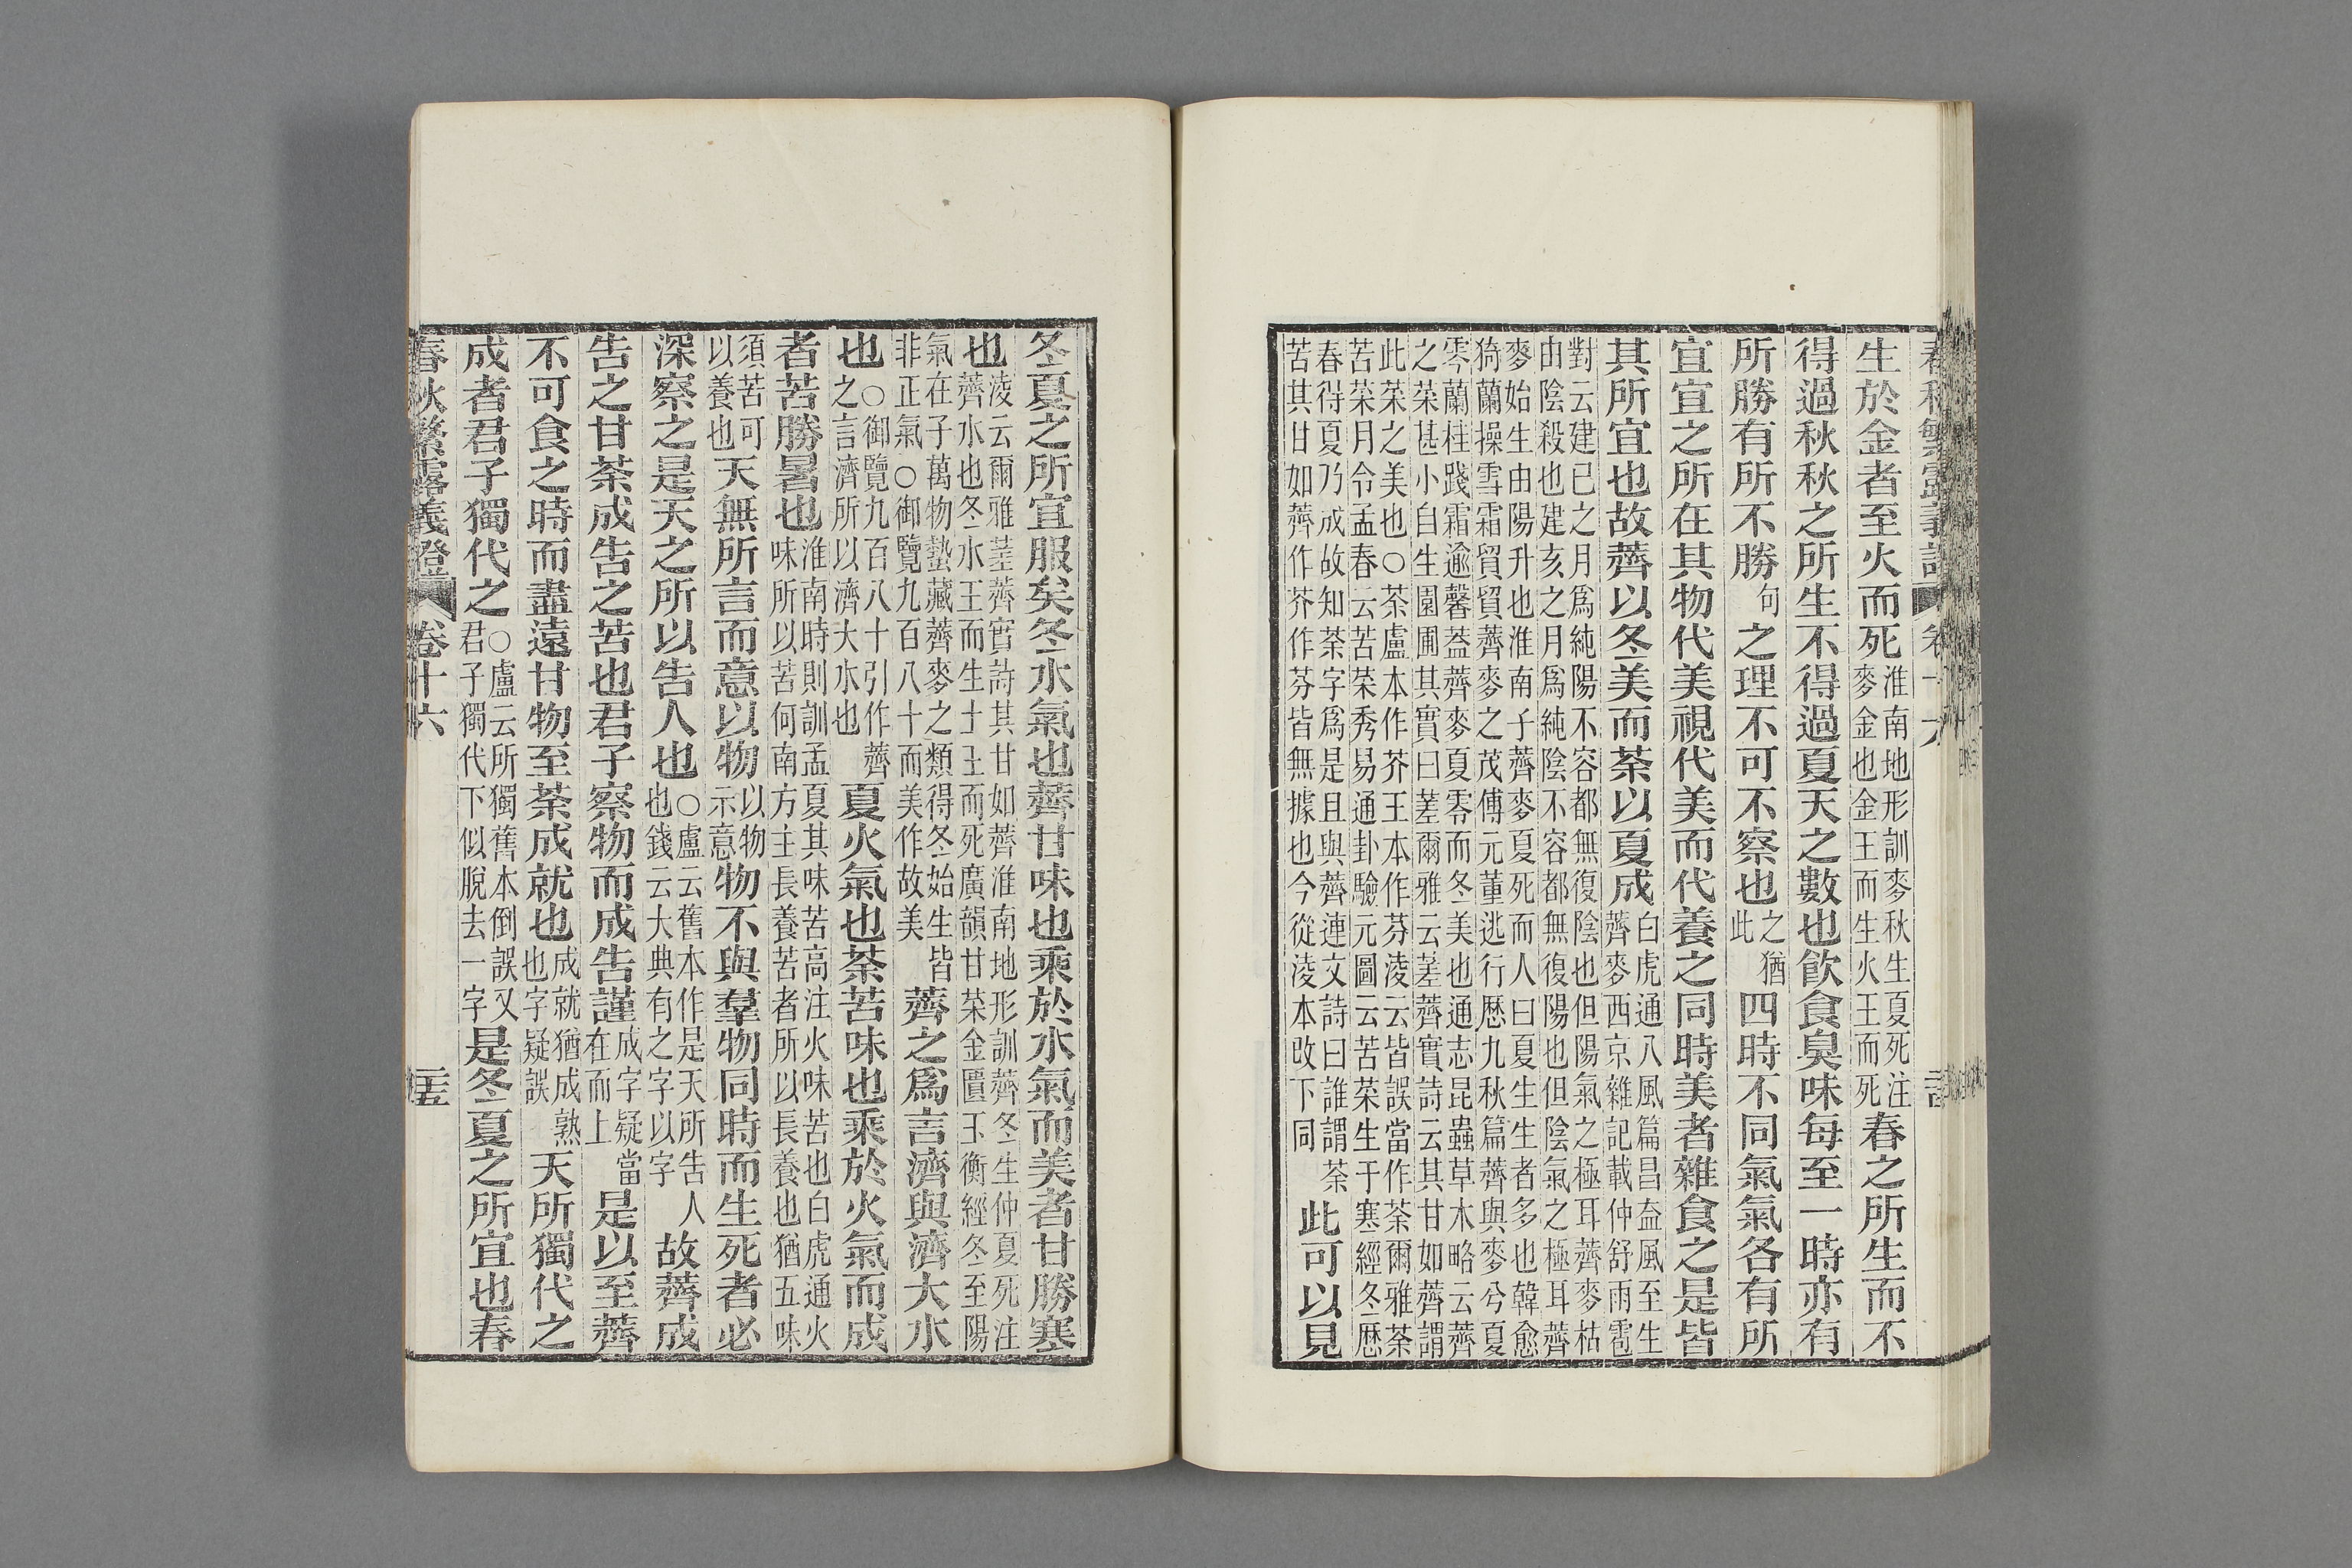 春秋繁露義證 卷十六
生於金者至火而死淮南地形訓麥秋生夏死注
麥金也金王而生火王而死春之所生而不
得過秋秋之所生不得過夏天之數也飲食臭味每至一時亦有
所勝有所不勝句之理不可不察也之猶
此四時不同氣氣各有所
宜宜之所在其物代美視代美而代養之同時美者雜食之是皆
其所宜也故薺以冬美而荼以夏成白虎通八風篇昌盍風至生
薺麥西京雜記載仲舒雨雹
對云建巳之月爲純陽不容都無復陰也但陽氣之極耳薺麥枯
由陰殺也建亥之月爲純陰不容都無復陽也但陰氣之極耳薺
麥始生由陽升也淮南子薺麥夏死而人曰夏生生者多也韓愈
猗蘭操雪霜貿貿薺麥之茂傅元董逃行歷九秋篇薺與麥兮夏
零蘭桂踐霜逾馨葢薺麥夏零而冬美也通志昆蟲草木略云薺
之菜甚小白生園圃其實曰蒫爾雅云蒫薺實詩云其甘如薺謂
此菜之美也○荼盧本作芥王本作芬淩云皆誤當作荼爾雅荼
苦菜月令孟春云苦菜秀易通卦驗元圖云苦菜生于寒經冬歷
春得夏乃成故知荼字爲是且與薺連文詩曰誰謂荼
苦其甘如薺作芥作芬皆無據也今從淩本改下同此可以見
冬夏之所宜服矣冬水氣也薺甘味也乘於水氣而美者甘勝寒
也淩云爾雅蒫薺實詩其甘如薺淮南地形訓薺冬生仲夏死注
薺水也冬水王而生土王而死廣韻甘菜金匱玉衡經冬至陽
氣在子萬物蟄藏薺麥之類得冬始生皆
非正氣○御覽九百八十而美作故美薺之爲言濟與濟大水
也○御覽九百八十引作薺
之言濟所以濟大水也夏火氣也荼苦味也乘於火氣而成
者苦勝暑也淮南時則訓孟夏其味苦高注火味苦也白虎通火
味所以苦何南方主長養苦者所以長養也猶五味
須苦可
以養也天無所言而意以物以物
示意物不與羣物同時而生死者必
深察之是天之所以告人也○盧云舊本作是天所告人
也錢云大典有之字以字故薺成
告之甘荼成告之苦也君子察物而成告謹成字疑當
在而上是以至薺
不可食之時而盡遠甘物至荼成就也成就猶成熟
也字疑誤天所獨代之
成者君子獨代之○盧云所獨舊本倒誤又
君子獨代下似脫去一字是冬夏之所宜也春
春秋繁露義證 卷十六 二十五